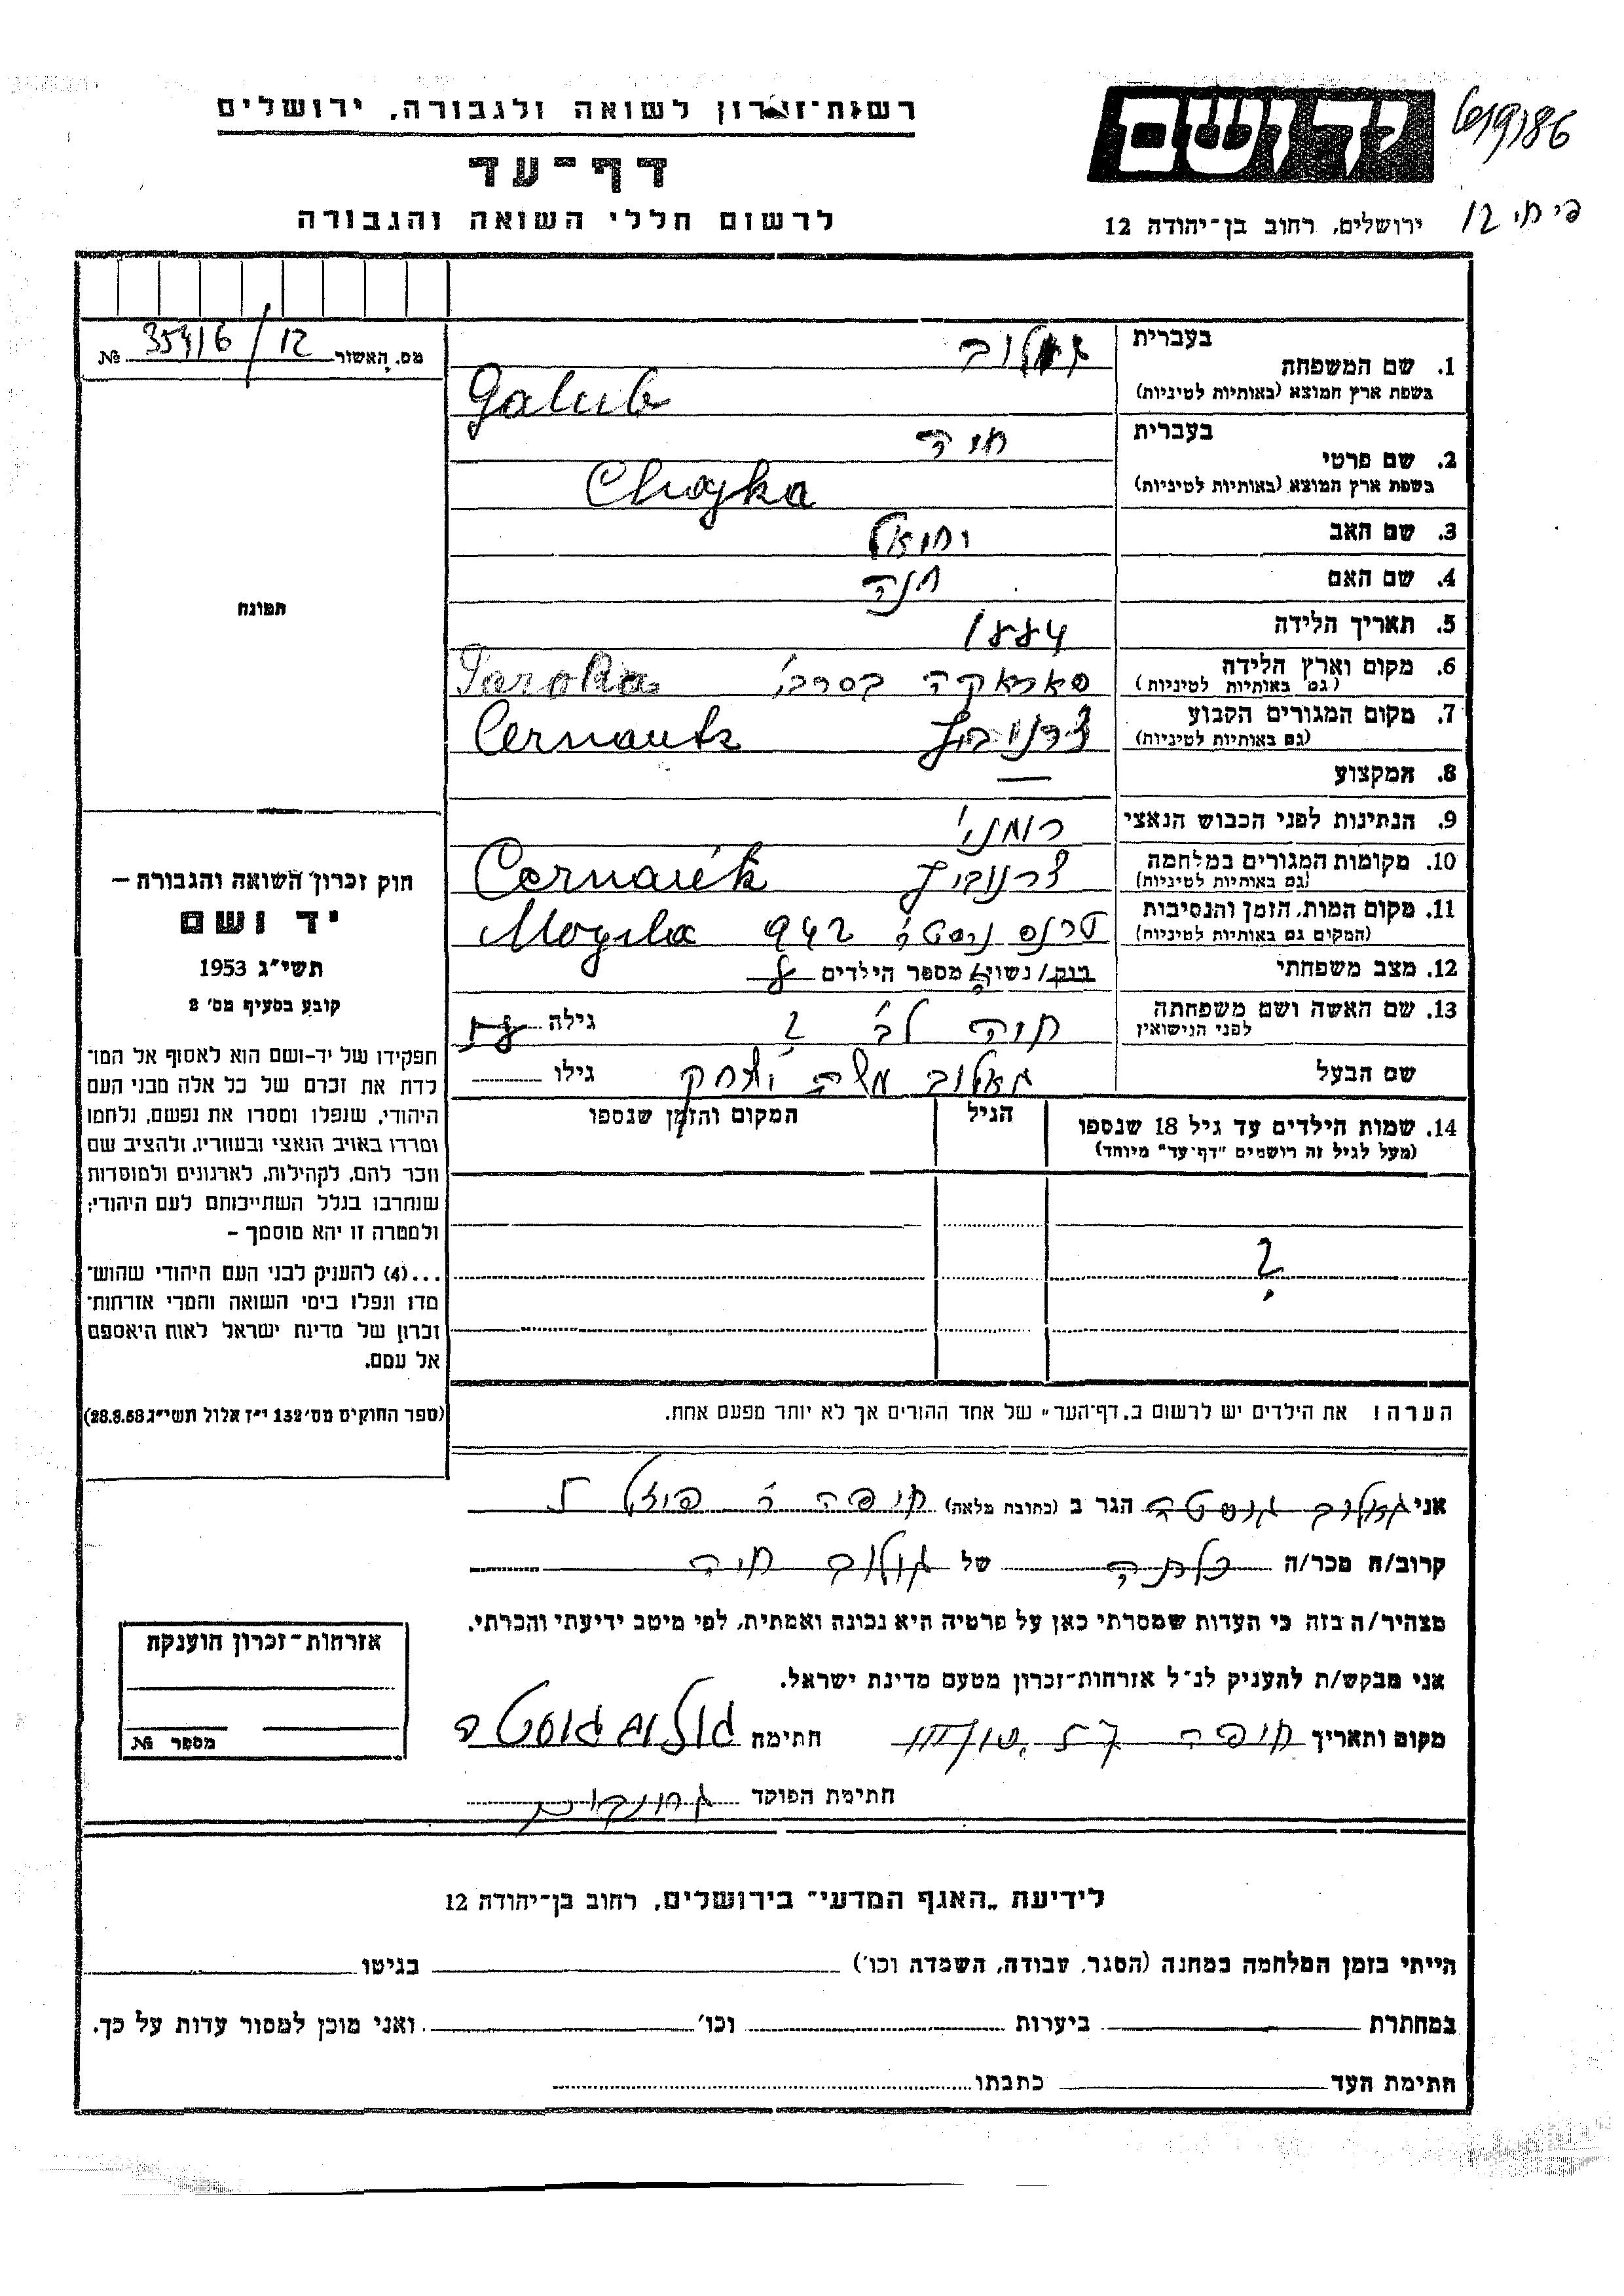 רשות־זכרון לשואה ולגבורה, ירושלים
דף־עד
לרשום חללי השואה והגבורה
יד ושם
ירושלים, רחוב בן־יהודה 12
מס. האשור 35416/12 №
בעברית
1. שם המשפחה
בשפת ארץ המוצא (באותיות לטיניות) Galub
בעברית חיה
2. שם פרטי
בשפת ארץ המוצא (באותיות לטיניות) Chajka
3. שם האב
4. שם האם חנה
5. תאריך הלידה 1884
6. מקום וארץ הלידה
(גם באותיות לטיניות)
7. מקום המגורים הקבוע
(גם באותיות לטיניות)
8. המקצוע —
9. הנתינות לפני הכבוש הנאצי רומני'
10. מקומות המגורים במלחמה
(גם באותיות לטיניות)
11. מקום המות, הזמן והנסיבות 942
(המקום גם באותיות לטיניות)
12. מצב משפחתי רוק/נשוי/ה מספר הילדים 8
13. שם האשה ושם משפחתה
לפני הנישואין ? גילה 58
שם הבעל יצחק גילו
14. שמות הילדים עד גיל 18 שנספו הגיל המקום והזמן שנספו
(מעל לגיל זה רושמים "דף־עד" מיוחד)
?
הערה: את הילדים יש לרשום ב„דף־העד" של אחד ההורים אך לא יותר מפעם אחת.
תמונה
חוק זכרון השואה והגבורה —
יד ושם
תשי"ג 1953
קובע בסעיף מס' 2
תפקידו של יד-ושם הוא לאסוף אל המו־
לדת את זכרם של כל אלה מבני העם
היהודי, שנפלו ומסרו את נפשם, נלחמו
ומרדו באויב הנאצי ובעוזריו, ולהציב שם
וזכר להם, לקהילות, לארגונים ולמוסדות
שנחרבו בגלל השתייכותם לעם היהודי;
ולמטרה זו יהא מוסמך —
...(4) להעניק לבני העם היהודי שהוש־
מדו ונפלו בימי השואה והמרי אזרחות־
זכרון של מדינת ישראל לאות היאספם
אל עמם.
(ספר החוקים מס' 132 י"ז אלול תשי"ג 28.8.53)
אני גולוב גוסטה הגר ב (כתובת מלאה) חיפה
קרוב/ה מכר/ה כלתה של גולוב חיה
מצהיר/ה בזה כי העדות שמסרתי כאן על פרטיה היא נכונה ואמתית, לפי מיטב ידיעתי והכרתי.
אני מבקש/ת להעניק לנ"ל אזרחות־זכרון מטעם מדינת ישראל.
מקום ותאריך חיפה חתימה גולוב גוסטה
חתימת הפוקד
אזרחות־זכרון הוענקה
מספר №
לידיעת „האגף המדעי" בירושלים, רחוב בן־יהודה 12
הייתי בזמן המלחמה במחנה (הסגר, עבודה, השמדה וכו') בגיטו
במחתרת ביערות וכו' ואני מוכן למסור עדות על כך.
חתימת העד כתבתו